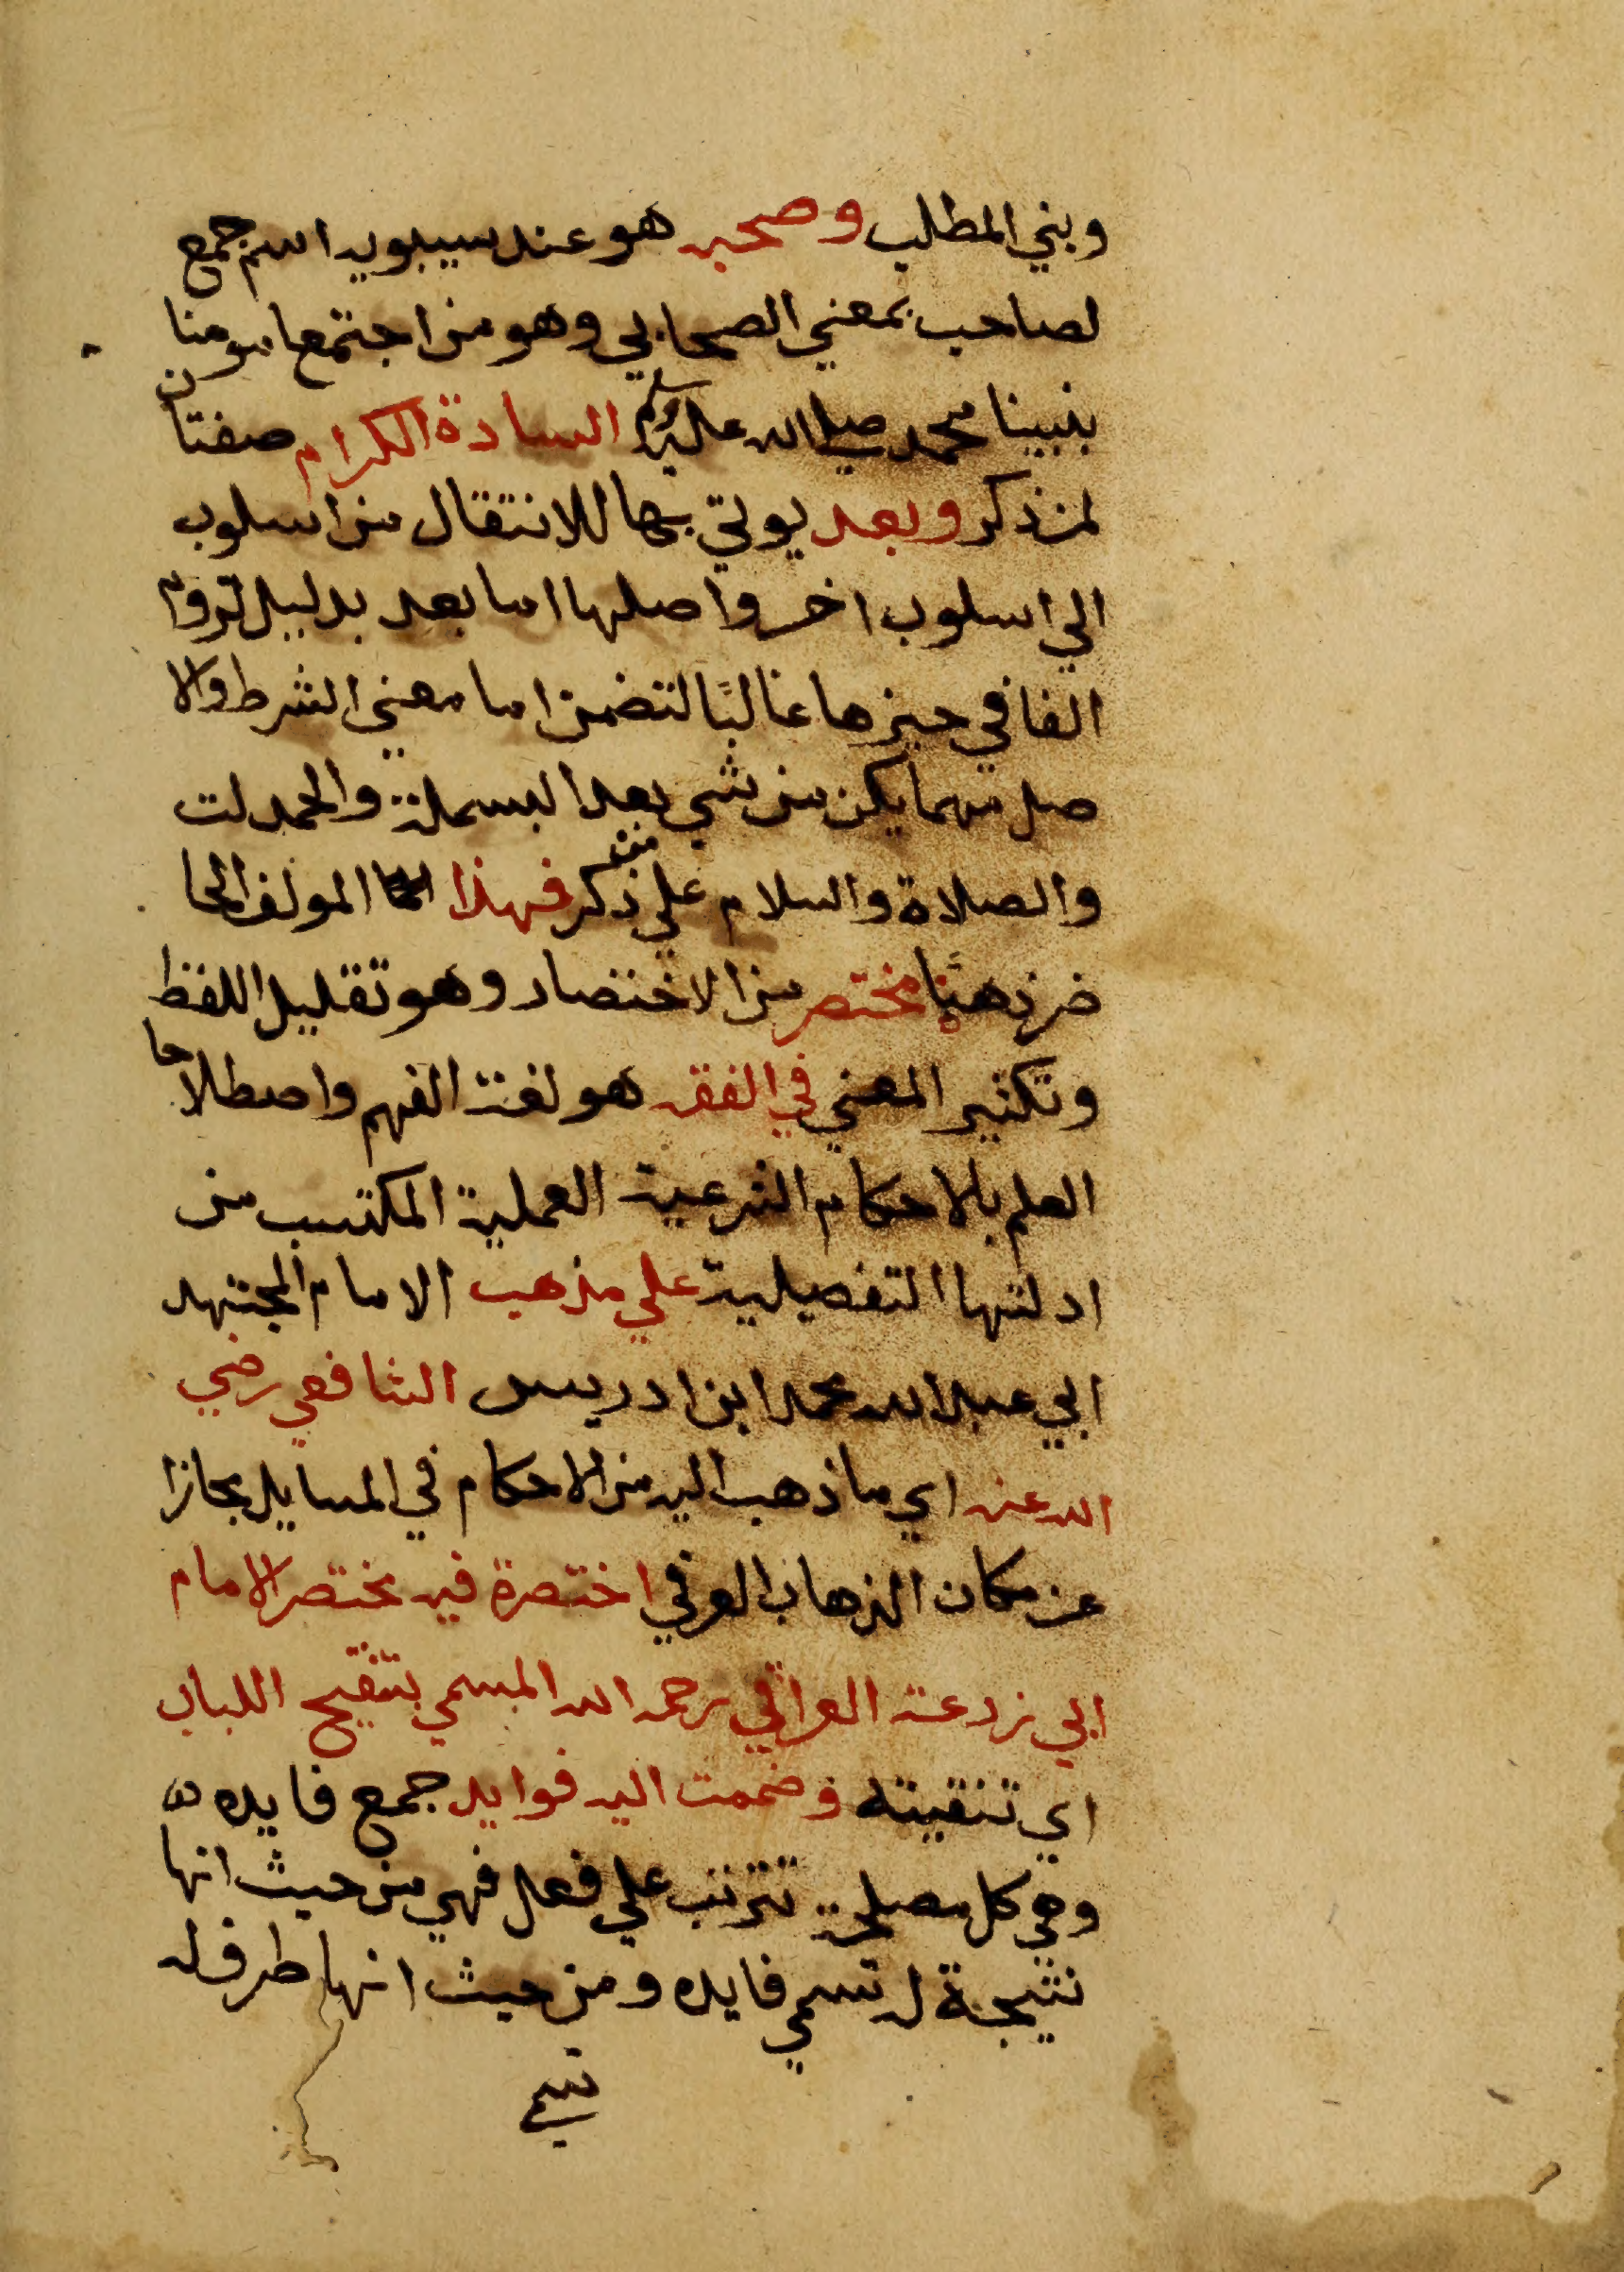 وبني المطلب وصحبه هو عند سيبويه اسم جمع
لصاحب بمعني الصحابي وهو من اجتمع مومنا
بنبينا محمد صلي الله عليه وسلم السادة الكرام صفتان
لمن ذكر وبعد يوتي بها للانتقال من اسلوب
الي اسلوب اخر واصلها اما بعد بدليل لزوم
الفا في حيزها غالبًا لتضمن اما معني الشرط والا
صل مهما يكن من شي بعد البسملة والحمدلت
والصلاة والسلام علي من ذكر فهذا المولف الحا
ضر ذهنًا مختصر من الاختصار وهو تقليل اللفظ
وتكثير المعني في الفقه هو لغة الفهم واصطلاحا
العلم بالاحكام الشرعية العملية المكتسب من
ادلتها التفصيلية علي مذهب الامام المجتهد
ابي عبد الله محمد ابن ادريس الشافعي رضي
الله عنه اي ما ذهب اليه من الاحكام في المسايل مجازا
عن مكان الذهاب العرفي اختصرة فيه مختصر الامام
ابي زرعة العراقي رحمه الله المسمي بتنقيح اللباب
اي تنقيته وضممت اليه فوايد جمع فايده
وهي كل مصلحة تترتب علي فعل فهي من حيث انها
نتيجة له تسمي فايده ومن حيث انها طرف له
تسمي